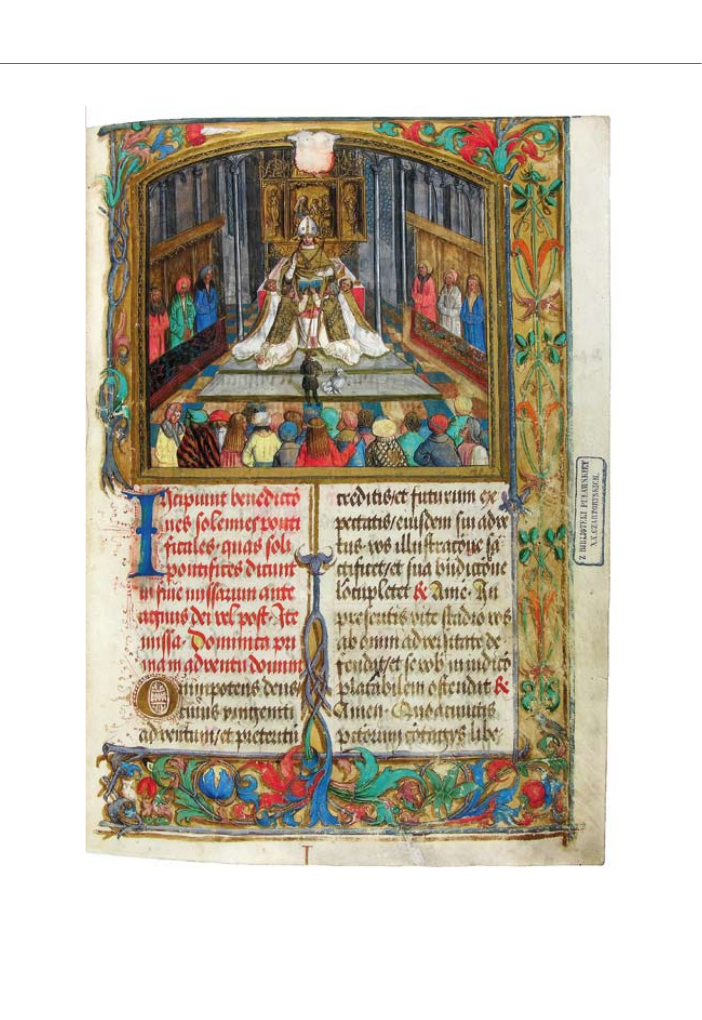 Incipiunt benedictiō
nes solennes ponti
ficales· quas soli
pontifices dicunt
in fine missarum ante
agnus dei vel post· Ite
missa· Dominica pri
ma in adventu domini
Omnipotens deus
cuius unigeniti
adventum/et preteritū
creditis/et futurum ex
pectatis/eiusdem sui advē
tus· vos illustratiōne sā
ctificet/et sua bndictiōne
locupletet & Amē· In
presentis vite stadio vos
ab omni adversitate de
fendat/et se vob in iudiciō
placabilem ostendat &
Amen· Quo a cunctis
pctōrum cōtagijs libe-
Z BIBLIOTEKI PUŁAWSKIEY
X.X. CZARTORYSKICH.